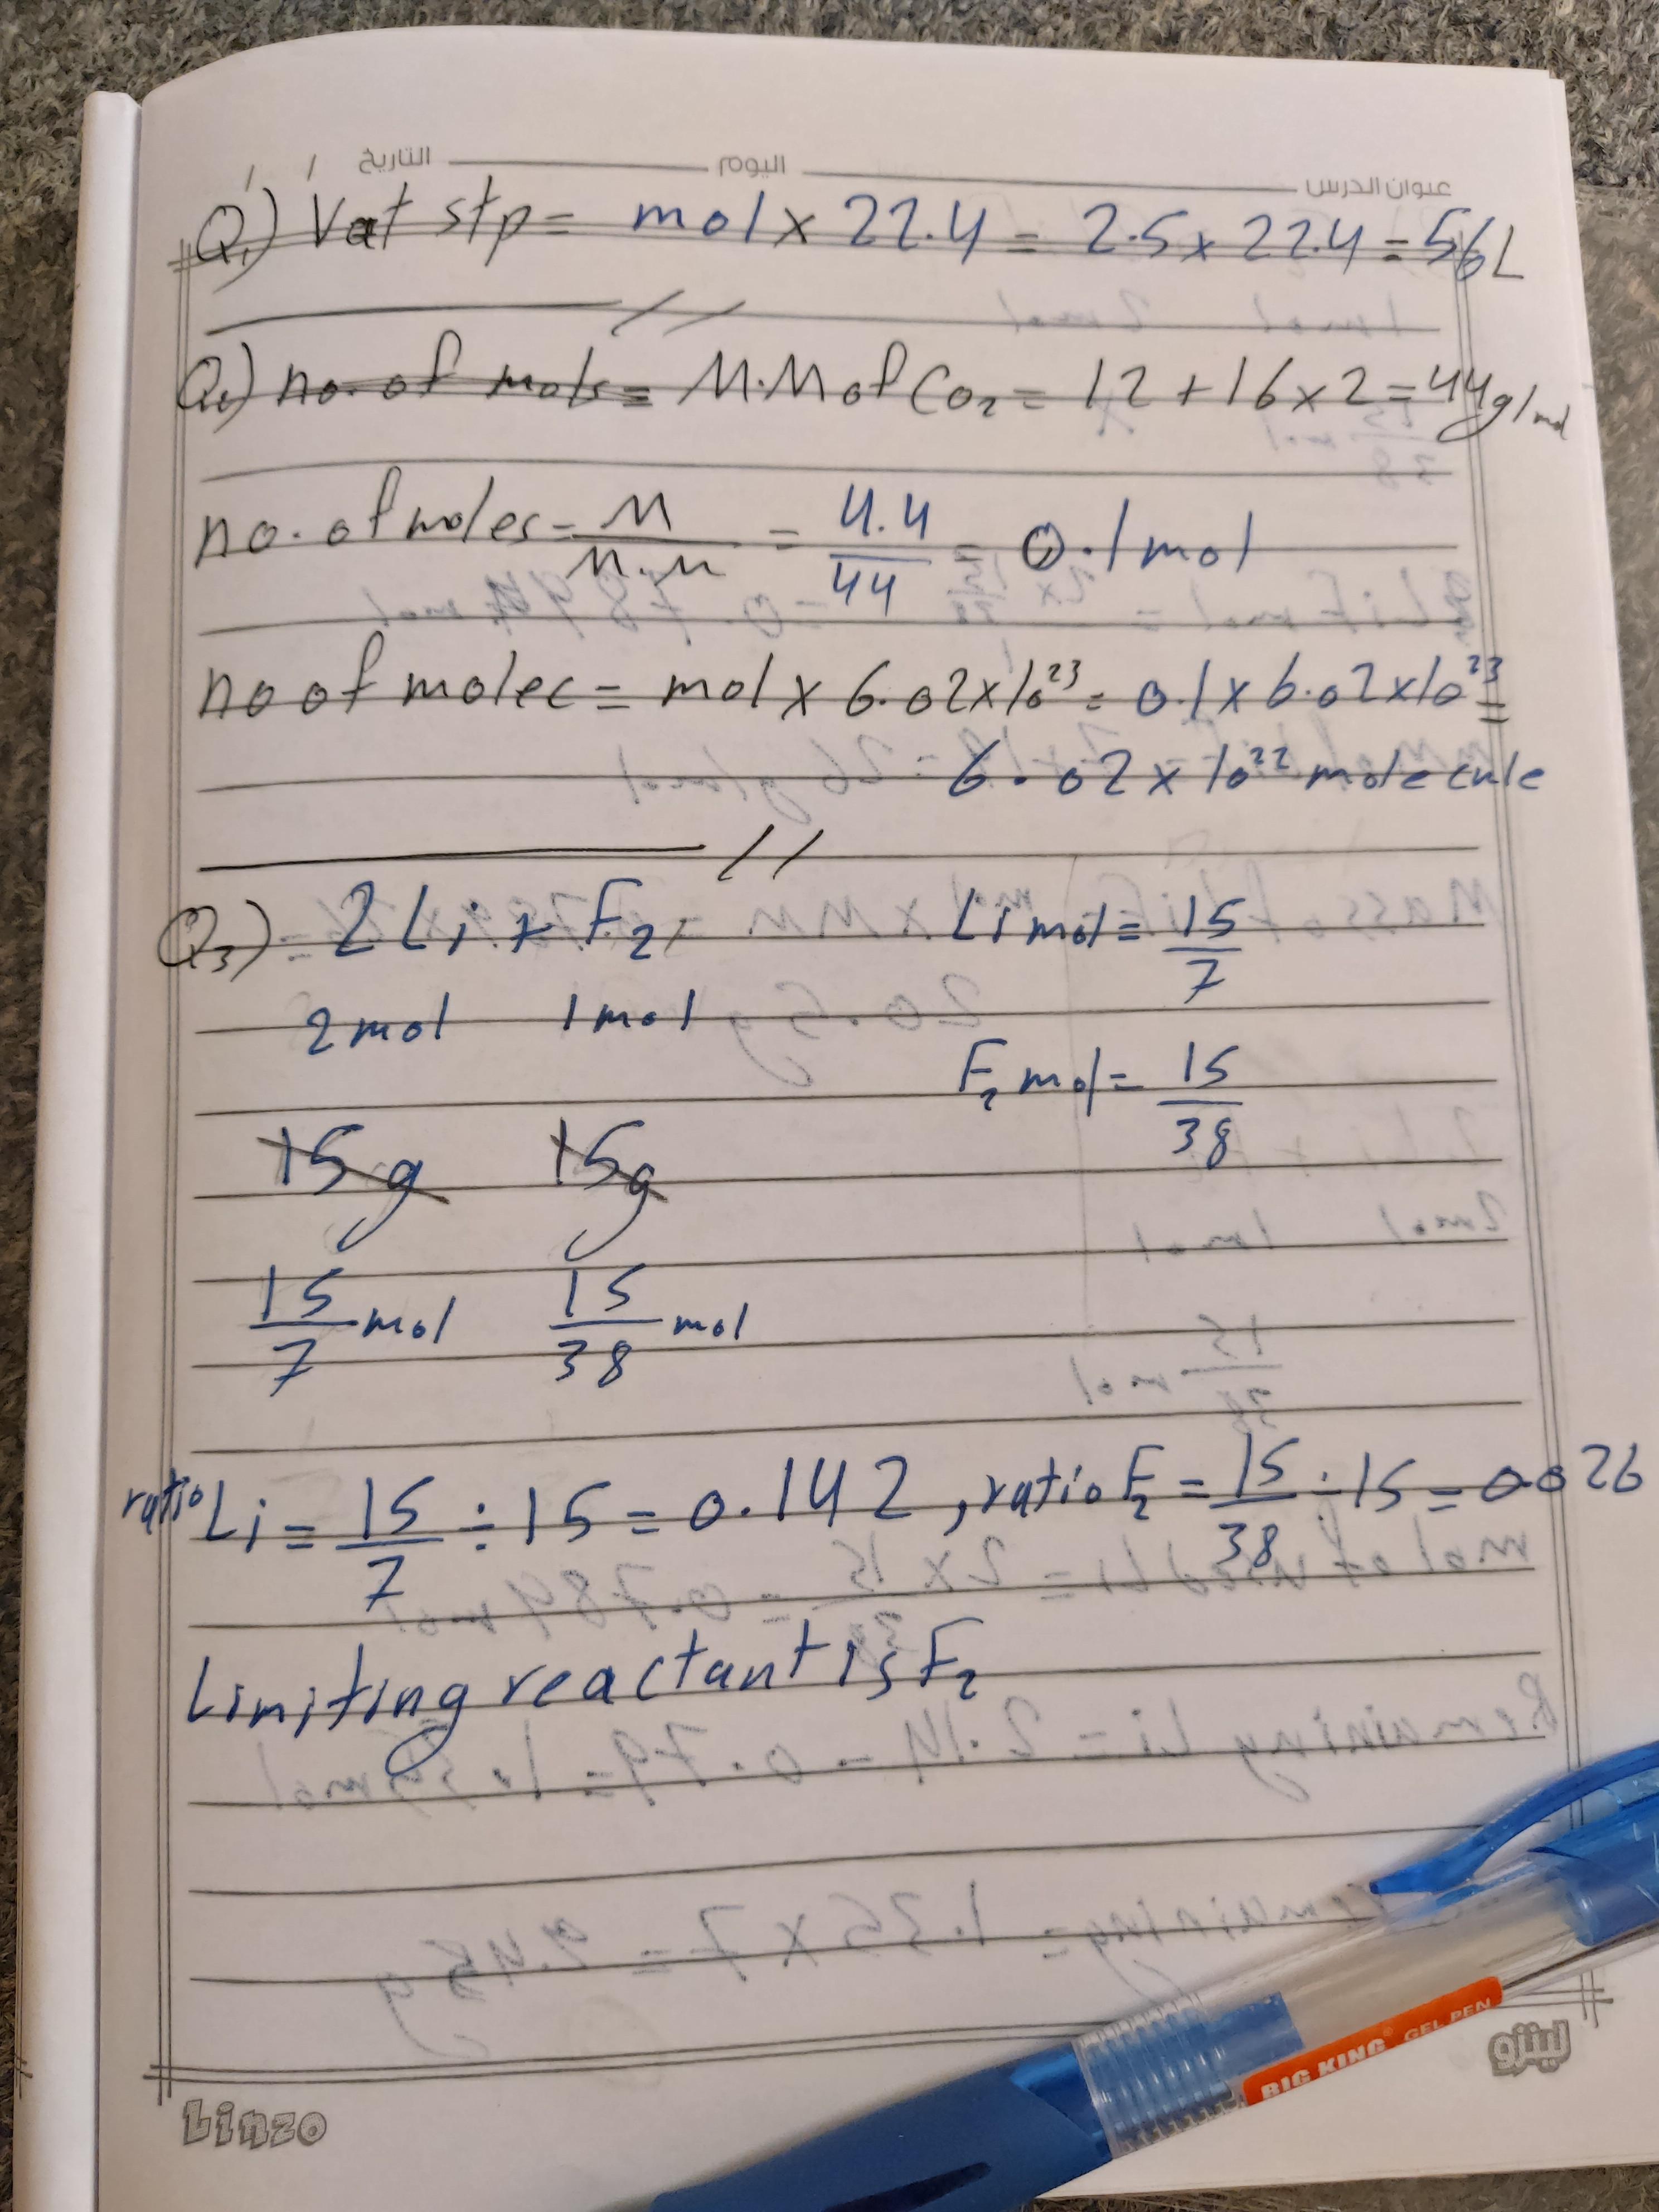 عنوان الدرس اليوم التاريخ / /
Q1) V at stp = mol x 22.4 = 2.5 x 22.4 = 56L
Q2) no. of mols = M.M of CO2 = 12 + 16 x 2 = 44 g/mol
no. of moles = M/M.M = 4.4/44 = 0.1 mol
no of molec = mol x 6.02x10²³ = 0.1 x 6.02x10²³ =
6.02 x 10²² molecule
Q3) 2Li + F2, Li mol = 15/7
2 mol 1 mol
F2 mol = 15/38
15g 15g
15/7 mol 15/38 mol
ratio Li = 15/7 ÷ 15 = 0.142, ratio F2 = 15/38 ÷ 15 = 0.026
Limiting reactant is F2
BIG KING GEL PEN
Linzo لينزو